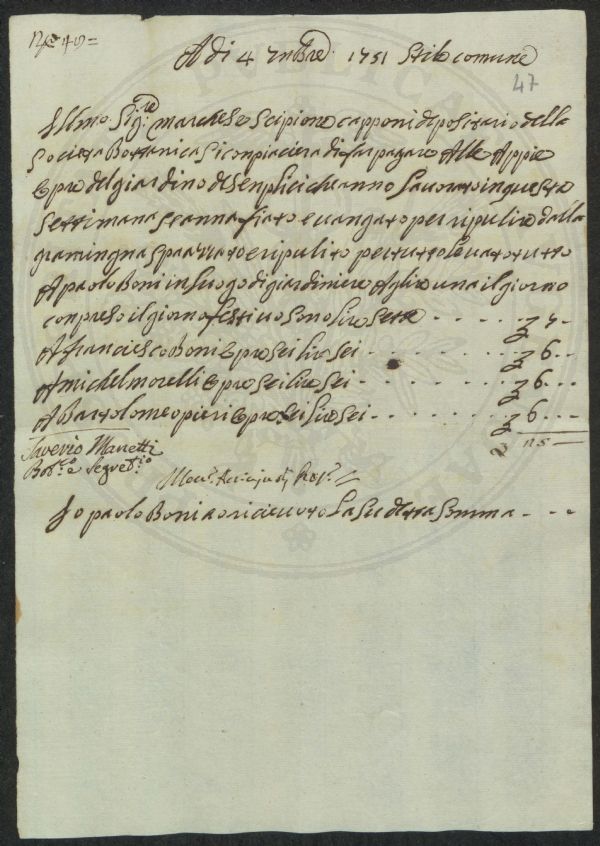 N.º 49=
A di 4 7mBre. 1751 Stile comune
47
Illmo. Sig:re marchese Scipione capponi depositario della
Societa Bottanica Si conpiacera di far pagare Alle Appie
Opre del giardino de Senplici che anno Lavorato in questa
Settimana e anna fiato e vangato per ripulire dalla
gramingna spazzato e ripulito per tutto Levato tutto
A paolo Boni in Luogo di giardiniere A lire una il giorno
conpreso il giorno festivo Sono Lire Sette - - - - - £ 7 -
A franciesco Boni Opre Sei Lire Sei - - - - - £ 6 - - -
A michel morelli Opre Sei Lire Sei - - - - - £ 6 - - -
A Bartolomeo pieri Opre Sei Lire Sei - - - - - £ 6 - - -
£ 25 —
Saverio Manetti
Bot:co e Segret:rio
Io paolo Boni o ricievuto La Su detta Somma - - -
PUBLICA